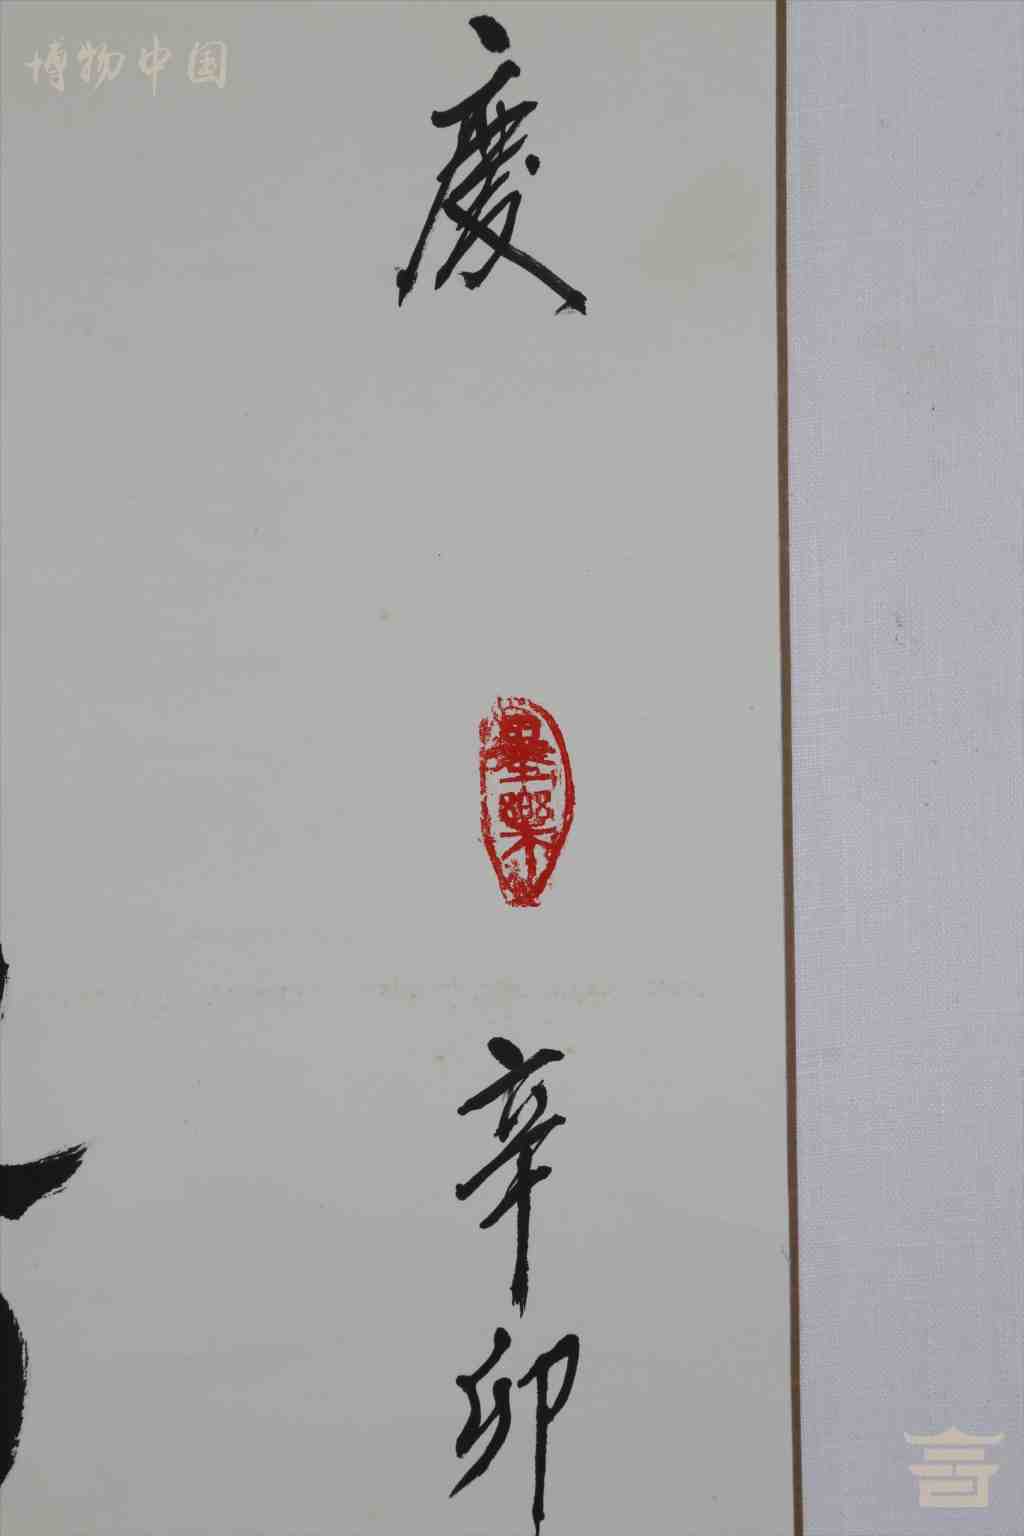 博物中国
慶
墨樂
辛卯